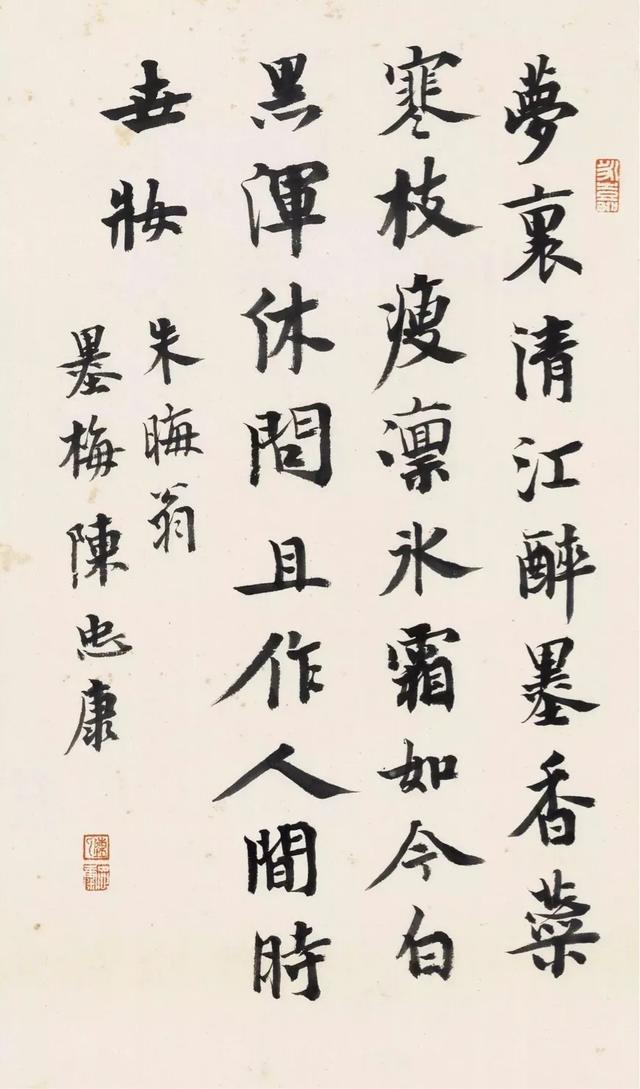 夢裏清江醉墨香蘂
寒枝瘦凛氷霜如今白
黑渾休問且作人間時
世妝
朱晦翁
墨梅陳忠康